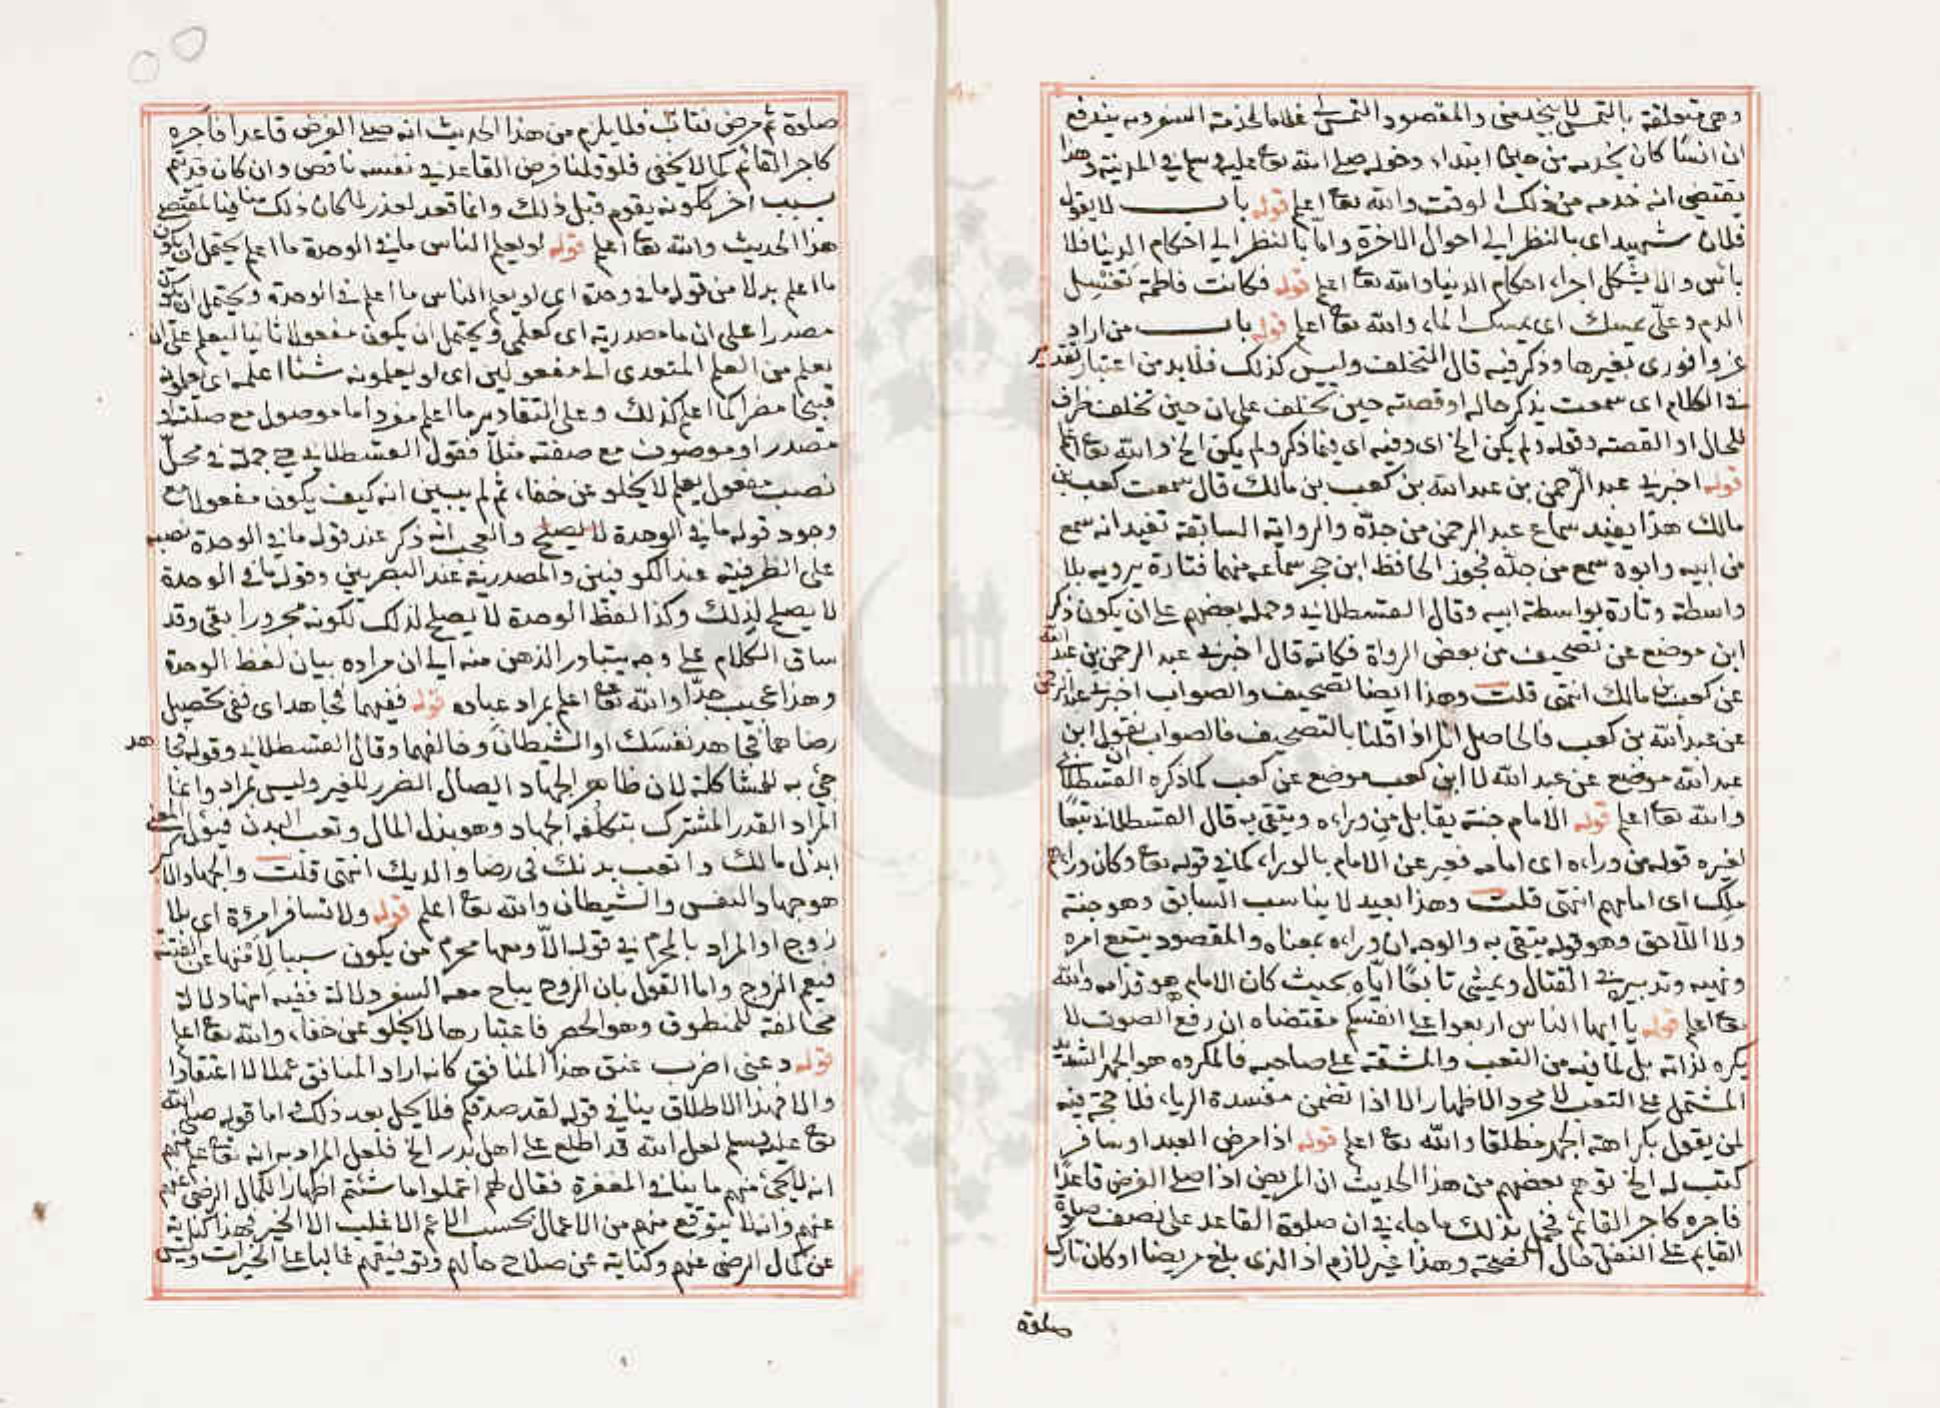 وهي متعلقة بالتمس لا بيخدمني والمقصود التمس لي غلاما لخدمة السفر وبه يندفع
ان انسا كان يخدمه من حيثما ابتداء دخوله صلى الله تعا عليه وسلم في المدينة وهذا
يقتضي انه خدمه من ذلك الوقت والله تعا اعلم قوله باب لا يقول
فلان شهيد اى بالنظر الى احوال الاخرة واما بالنظر الى احكام الدنيا فلا
باس والا يشكل اجراء احكام الدنيا والله تعا اعلم قوله فكانت فاطمة تغسل
الدم وعلىّ يمسك اى يمسك الماء والله تعا اعلم قوله باب من اراد
غزوا فورى بغيرها وذكر فيه قال المتخلف وليس كذلك فلا بد من اعتبار تقدير
في الكلام اى سمعت يذكر حاله او قصته حين تخلف على ان حين تخلف ظرف
للحال او القصة وقوله ولم يكن الخ اى وفيه اى فيما ذكر ولم يكن الخ والله تعا اعلم
قوله اخبرني عبد الرحمن بن عبد الله بن كعب بن مالك قال سمعت كعب بن
مالك هذا يفيد سماع عبد الرحمن من جدّه والرواية السابقة تفيد انه سمع
من ابيه وابوه سمع من جده فجوز الحافظ ابن حجر سماعه منهما فتارة يرويه بلا
واسطة وتارة بواسطة ابيه وقال القسطلاني وحمله بعضهم على ان يكون ذكر
ابن موضع عن تصحيف من بعض الرواة فكانه قال اخبرني عبد الرحمن بن عبد الله
عن كعب بن مالك انتهى قلت وهذا ايضا تصحيف والصواب اخبرني عبد الرحمن
عن عبد الله بن كعب فالحاصل انا اذا قلنا بالتصحيف فالصواب ان نقول ابن
عبد الله موضع عن عبد الله لا ابن كعب موضع عن كعب كما ذكره القسطلاني
والله تعا اعلم قوله الامام جنة يقاتل من وراءه ويتقى به قال القسطلاني تبعا
لغيره قوله من وراءه اى امامه فعبر عن الامام بالوراء كما في قوله تعا وكان وراءهم
ملك اى امامهم انتهى قلت وهذا بعيد لا يناسب السابق وهو جنة
ولا اللاحق وهو قوله يتقى به والوجه ان وراءه بمعناه والمقصود يتبع امره
ونهيه وتدبيره في القتال ويمشى تابعا اياه بحيث كان الامام هو قدامه والله
تعا اعلم قوله يا ايها الناس اربعوا على انفسكم مقتضاه ان رفع الصوت لا
يكره لذاته بل لما فيه من التعب والمشقة على صاحبه فالمكروه هو الجهر الشديد
المشتمل على التعب لا مجرد الاظهار الا اذا تضمن مفسدة الرياء فلا حجة فيه
لمن يقول بكراهة الجهر مطلقا والله تعا اعلم قوله اذا مرض العبد او سافر
كتب له الخ توهم بعضهم من هذا الحديث ان المريض اذا صلى الفرض قاعدًا
فاجره كاجر القائم فحمل بذلك ما جاء في ان صلوة القاعد على نصف صلوة
القايم على النفل حال الصحة وهذا غير لازم اذ الذى بلغ مريضا او كان تارك
صلوة
صلوة ثم مرض فتاب فلا يلزم من هذا الحديث انه صلى الفرض قاعدا فاجره
كاجر القائم كما لا يخفى فلو قلنا فرض القاعد في نفسه ناقص وان كان قد يتم
بسبب اخر ككونه يقوم قبل ذلك وانما قعد لعذر لما كان ذلك منافيا لمقتضى
هذا الحديث والله تعا اعلم قوله لو يعلم الناس ما في الوحدة ما اعلم يحتمل ان يكون
ما اعلم بدلا من قوله ما في وحدة اى لو يعلم الناس ما اعلم في الوحدة ويحتمل ان يكون
مصدرا على ان ما مصدرية اى كعلمي ويحتمل ان يكون مفعولا ثانيا ليعلم على ان
يعلم من العلم المتعدى الى مفعولين اى لو يعلمونه شئا اعلمه اى يعلمونه
قبيحا مضرا كما اعلم كذلك وعلى التقادير ما اعلم مفرد اما موصول مع صلته او
مصدر او موصوف مع صفته مثلا فقول القسطلاني جملة في محلّ
نصب مفعول يعلم لا يخلو عن خفاء ثم لم يبين انه كيف يكون مفعولا مع
وجود قوله ما في الوحدة لا يصلح والعجب انه ذكر عند قوله ما في الوحدة نصب
على الظرفية عند الكوفيين والمصدرية عند البصريين وقوله ما في الوحدة
لا يصلح لذلك وكذا لفظ الوحدة لا يصلح لذلك لكونه مجرورا بفي وقد
ساق الكلام على وجه يتبادر الذهن منه الى ان مراده بيان لفظ الوحدة
وهذا عجيب جدّا والله تعا اعلم بمراد عباده قوله ففيهما فجاهد اى ففي تحصيل
رضاهما فجاهد نفسك او الشيطان وخالفهما وقال القسطلاني وقوله فجاهد
جئ به للمشاكلة لان ظاهر الجهاد ايصال الضرر للغير وليس بمراد وانما
المراد القدر المشترك بتكلفه الجهاد وهو بذل المال وتعب البدن فيؤل المعنى
ابذل مالك واتعب بدنك في رضا والديك انتهى قلت والجهاد الاكبر
هو جهاد النفس والشيطان والله تعا اعلم قوله ولا تسافر امرئة اى بلا
زوج او المراد بالمحرم في قوله الاّ ومعها محرم من يكون سببا لأمنها عن الفتنة
فيعم الزوج واما القول بان الزوج يباح معه السفر دلالة ففيه انها دلالة
مخالفة للمنطوق وهو الحصر فاعتبارها لا يخلو عن خفاء والله تعا اعلم
قوله دعني اضرب عنق هذا المنافق كانه اراد المنافق عملا لا اعتقادا
والا فهذا الاطلاق ينافي قوله لقد صدقكم فلا يحل بعد ذلك اما قوله صلى الله
تعا عليه وسلم لعل الله قد اطلع على اهل بدر الخ فلعل المراد به انه تعا علم منهم
انه لا يجئ منهم ما ينافي المغفرة فقال لهم اعملوا ما شئتم اظهارا لكمال الرضى عنهم
عنهم وانه لا يتوقع منهم من الاعمال بحسب الاعم الاغلب الا الخير فهذا كناية
عن كمال الرضى عنهم وكناية عن صلاح حالهم وتوفيقهم غالبا على الخيرات وليس